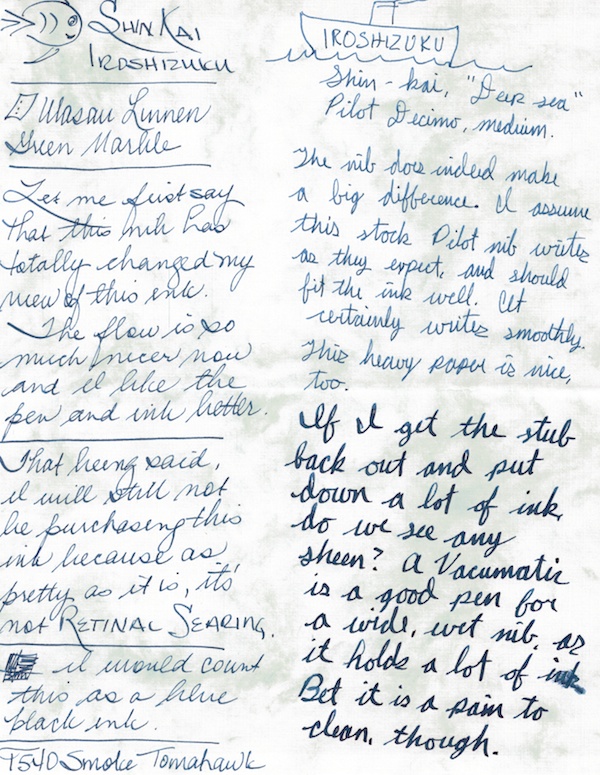 Shin Kai
Iroshizuku
Wasau Linnen
Green Marble
Let me first say
that this nib has
totally changed my
view of this ink.
The flow is so
much nicer now
and I like the
pen and ink better.
That being said,
I will still not
be purchasing this
ink because as
pretty as it is, it's
not RETINAL SEARING.
I would count
this as a blue
black ink.
T540 Smoke Tomahawk
IROSHIZUKU
Shin-kai, "Deep sea"
Pilot Decimo, medium.
The nib does indeed make
a big difference. I assume
this stock Pilot nib writes
as they expect, and should
fit the ink well. It
certainly writes smoothly.
This heavy paper is nice,
too.
If I get the stub
back out and put
down a lot of ink,
do we see any
sheen? A Vacumatic
is a good pen for
a wide, wet nib, as
it holds a lot of ink
But it is a pain to
clean, though.